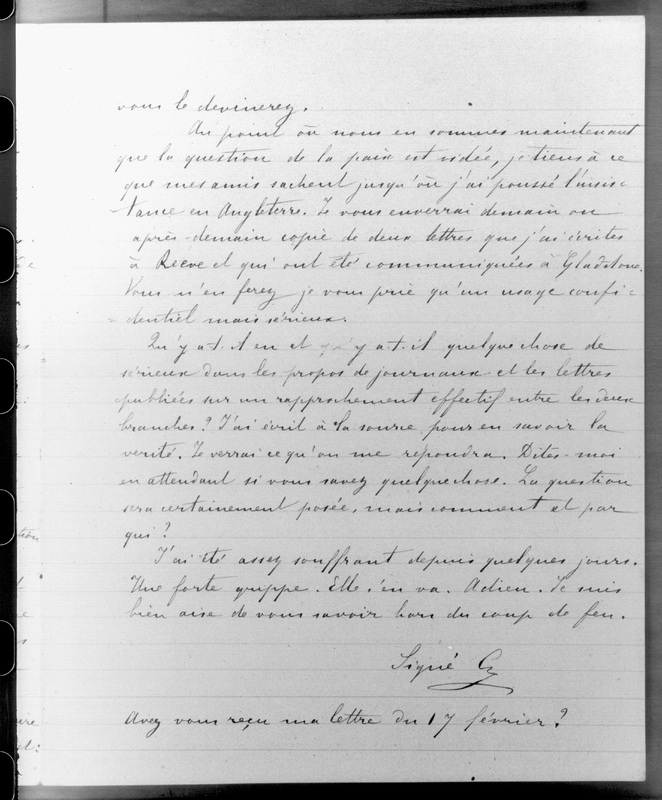 vous le devinerez.
Au point où nous en sommes maintenant
que la question de la paix est vidée, je tiens à ce
que mes amis sachent jusqu'où j'ai poussé l'insis=
-tance en Angleterre. Je vous enverrai demain ou
après-demain copie de deux lettres que j'ai écrites
à Reeve et qui ont été communiquées à Gladstone.
Vous n'en ferez je vous prie qu'un usage confi=
=dentiel mais sérieux.
Qu'y a.t.il en et y a.t.il quelque chose de
sérieux dans les propos de journaux et les lettres
publiées sur un rapprochement effectif entre les deux
branches? J'ai écrit à la source pour en savoir la
verité. Je verrai ce qu'on me repondra. Dites-moi
en attendant si vous savez quelque chose. La question
sera certainement posée, mais comment et par
qui?
J'ai été assez souffrant depuis quelques jours.
Une forte grippe. Elle s'en va. Adieu. Je suis
bien aise de vous savoir hors du coup de feu.
Signé G
Avez vous reçu ma lettre du 17 février?